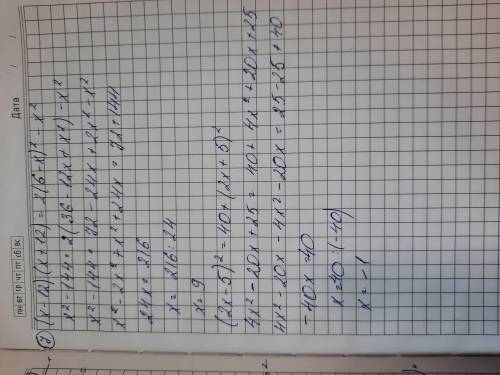 Дата
пн вт ср чт пт сб вс
7) (x-12)(x+12) = 2(6-x)² - x²
x² - 144 = 2(36 - 12x + x²) - x²
x² - 144 = 72 - 24x + 2x² - x²
x² - 2x² + x² + 24x = 72 + 144
24x = 216
x = 216 : 24
x = 9
(2x-5)² = 40 + (2x+5)²
4x² - 20x + 25 = 40 + 4x² + 20x + 25
4x² - 20x - 4x² - 20x = 25 - 25 + 40
-40x = 40
x = 40 : (-40)
x = -1